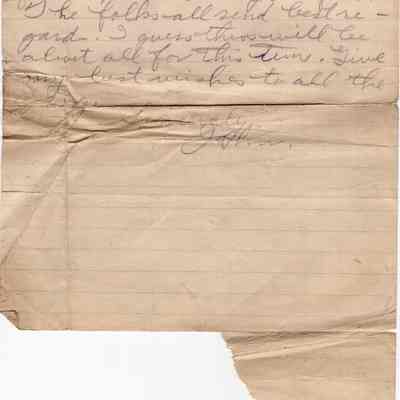 The folks all send best re-
gards. I guess this will be
about all for this time. Give
my best wishes to all the
Sincerely,